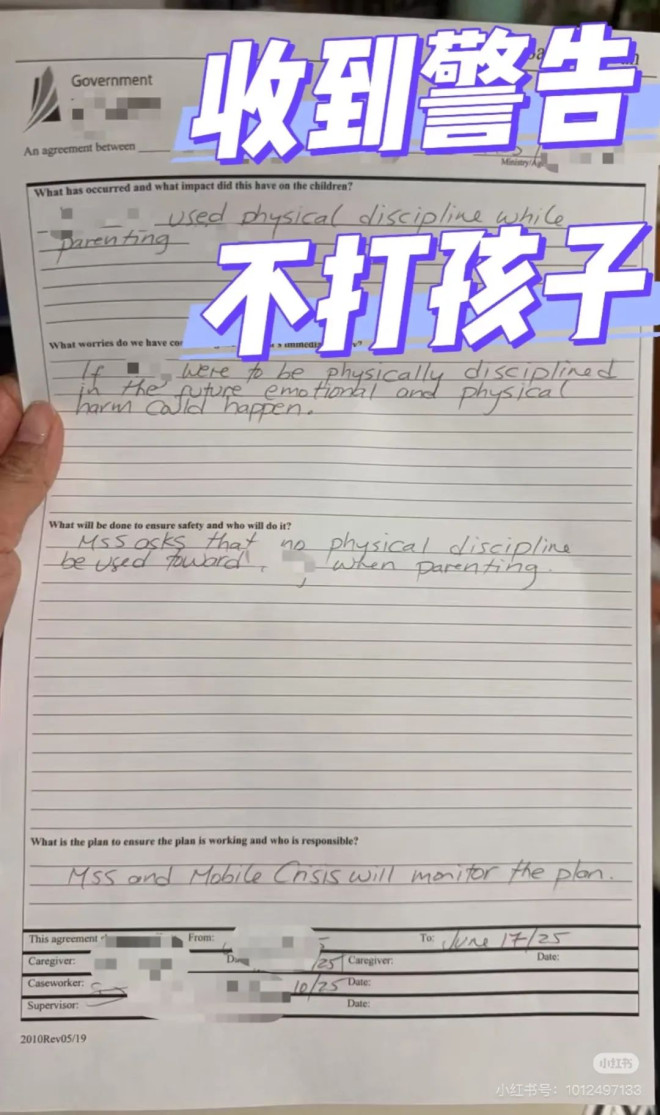 收到警告
Government
An agreement between
Ministry/Ag
What has occurred and what impact did this have on the children?
used physical discipline while
parenting
不打孩子
What worries do we have
If were to be physically disciplined
in the future emotional and physical
harm could happen.
What will be done to ensure safety and who will do it?
MSS asks that no physical discipline
be used toward when parenting.
What is the plan to ensure the plan is working and who is responsible?
MSS and Mobile Crisis will monitor the plan.
This agreement From: To: June 17/25
Caregiver: /25 Caregiver: Date:
Caseworker: 10/25 Date:
Supervisor: Date:
2010Rev05/19
小红书
小红书号：1012497133